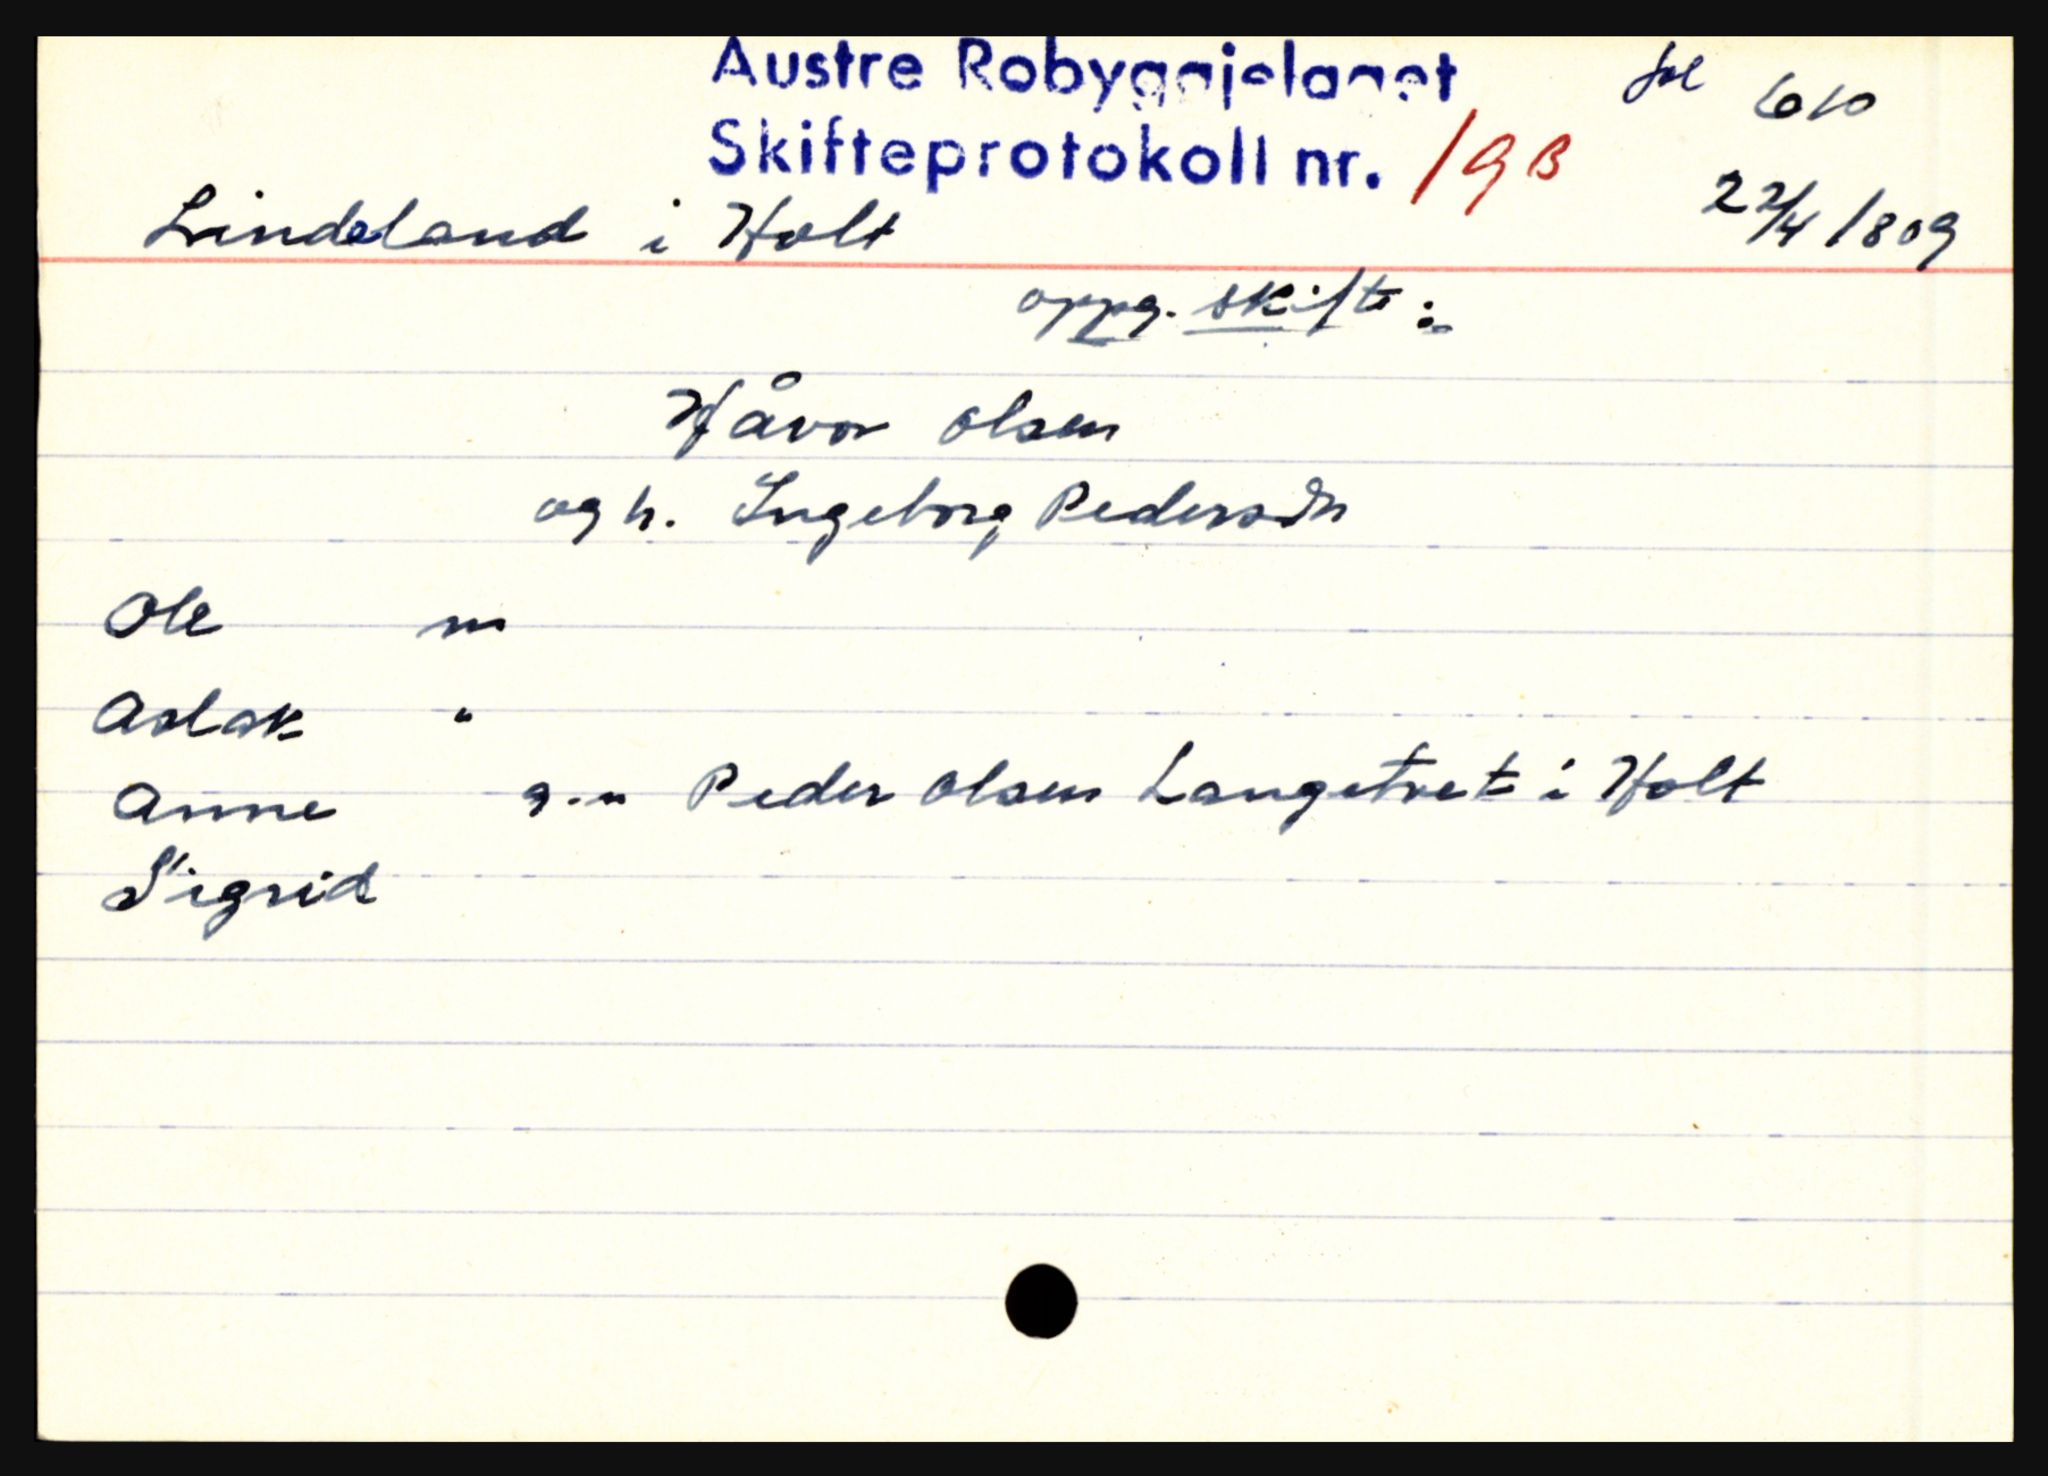 Austre Robyggjelaget fol 610
Skifteprotokoll nr. 19B
Lindeland i Holt 22/4 1809
oppg. skifte:
Håvor Olsen
og h. Ingeborg Pedersdtr
Ole m
Aslak "
Anne g.m Peder Olsen Langetveit i Holt
Sigrid